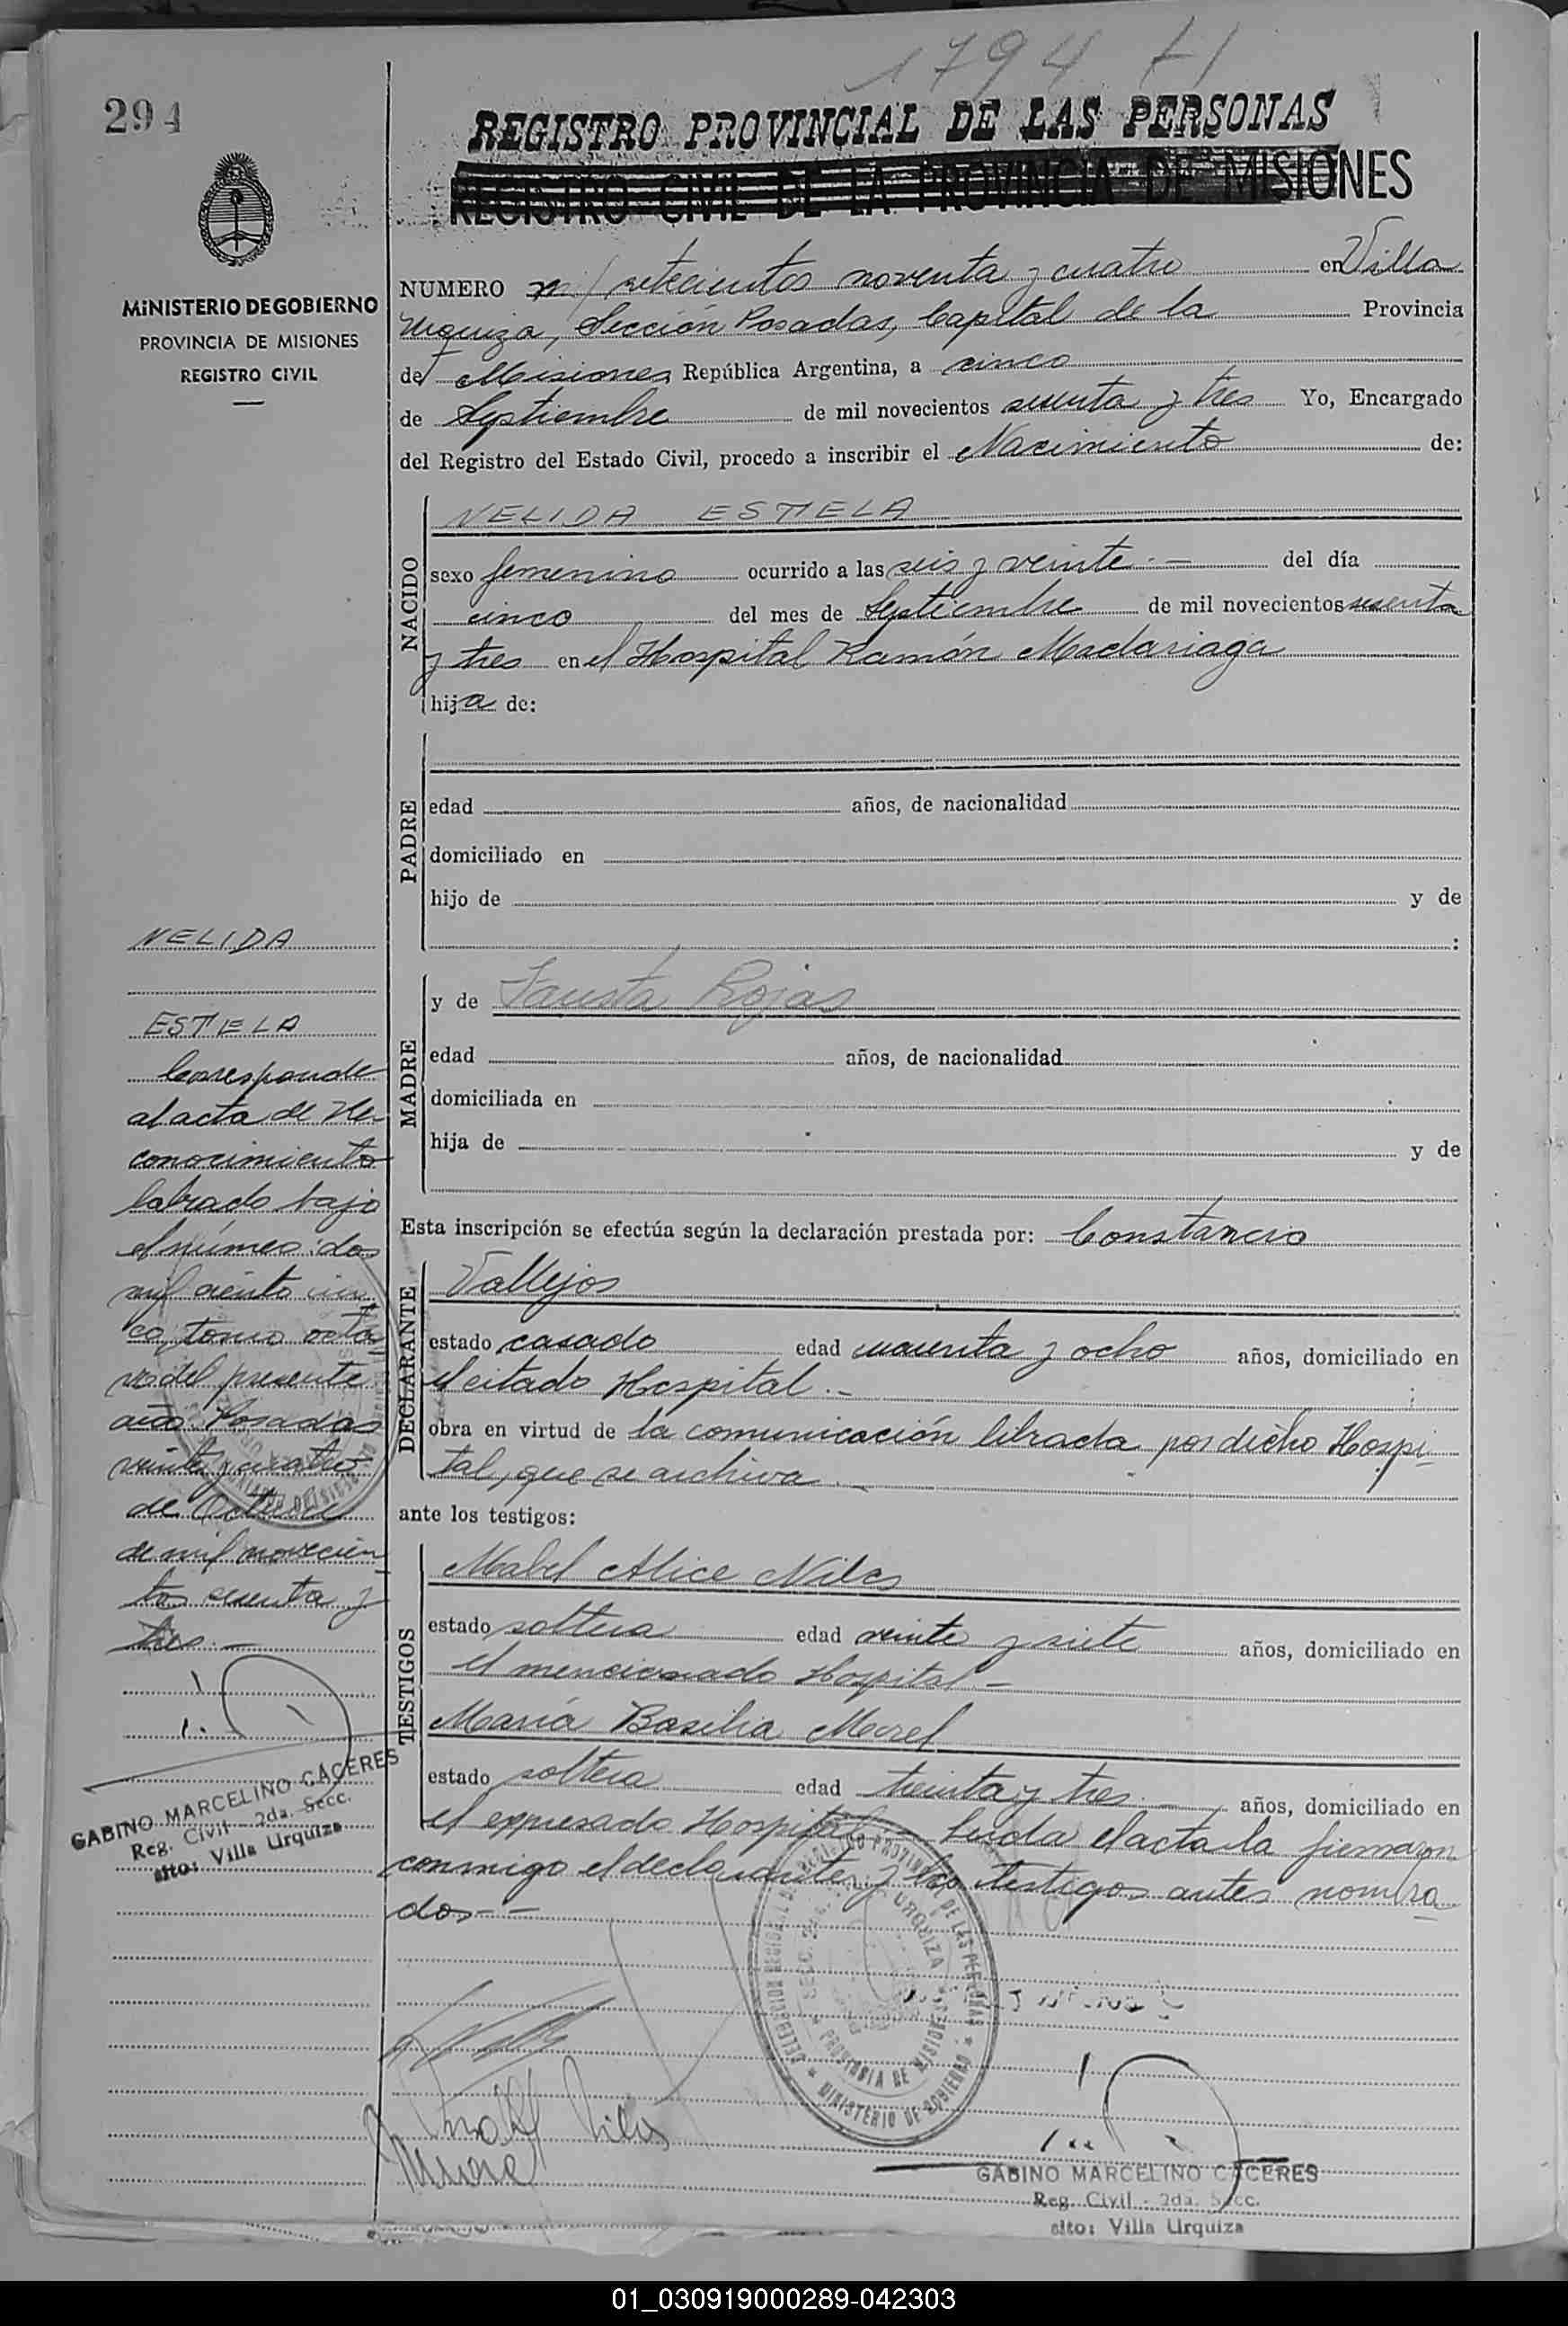 1794 H
294
REGISTRO PROVINCIAL DE LAS PERSONAS
REGISTRO CIVIL DE LA PROVINCIA DE MISIONES
MINISTERIO DE GOBIERNO
PROVINCIA DE MISIONES
REGISTRO CIVIL
NUMERO mil setecientos noventa y cuatro en Villa
Urquiza, Sección Posadas, Capital de la Provincia
de Misiones República Argentina, a cinco
de Septiembre de mil novecientos sesenta y tres Yo, Encargado
del Registro del Estado Civil, procedo a inscribir el Nacimiento de:
NACIDO
NELIDA ESTELA
sexo femenino ocurrido a las seis y veinte.- del día
cinco del mes de Septiembre de mil novecientos sesenta
y tres en el Hospital Ramón Madariaga
hija de:
PADRE
edad años, de nacionalidad
domiciliado en
hijo de y de
:
MADRE
y de Fausta Rojas
edad años, de nacionalidad
domiciliada en
hija de y de
Esta inscripción se efectúa según la declaración prestada por: Constancio
DECLARANTE
Vallejos
estado casado edad cuarenta y ocho años, domiciliado en
el citado Hospital.-
obra en virtud de la comunicación librada por dicho Hospi-
tal, que se archiva.-
ante los testigos:
TESTIGOS
Mabel Alice Niles
estado soltera edad veinte y siete años, domiciliado en
el mencionado Hospital.-
María Basilia Morel
estado soltera edad treinta y tres.- años, domiciliado en
el expresado Hospital.- Leida el acta la firmaron
conmigo el declarante y los testigos antes nombra
dos.-
NELIDA
ESTELA
Corresponde
al acta de Re-
conocimiento
labrado bajo
el número: dos
mil ciento cin
co, tomo octa-
vo del presente
año. Posadas
veinte y cuatro
de Octubre
de mil novecien
tos sesenta y
tres.-
GABINO MARCELINO CACERES
Reg. Civil - 2da. Secc.
sito: Villa Urquiza
DE LAS PERSONAS
URQUIZA
PROVINCIA DE MISIONES
MINISTERIO DE GOBIERNO
Niles
Morel
GABINO MARCELINO CACERES
Reg. Civil - 2da. Secc.
sito: Villa Urquiza
01_030919000289-042303